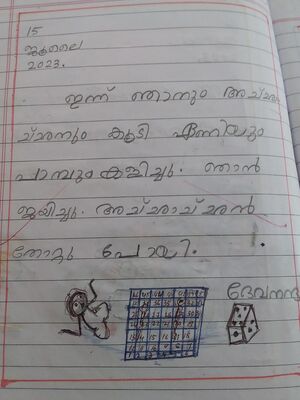 15
ജൂലൈ
2023.
ഇന്ന് ഞാനും അച്ഛാ
ച്ഛനും കൂടി ഏണിയും
പാമ്പുംകളിച്ചു. ഞാൻ
ജയിച്ചു. അച്ഛാച്ഛൻ
തോറ്റു പോയി.
ദേവനന്ദ